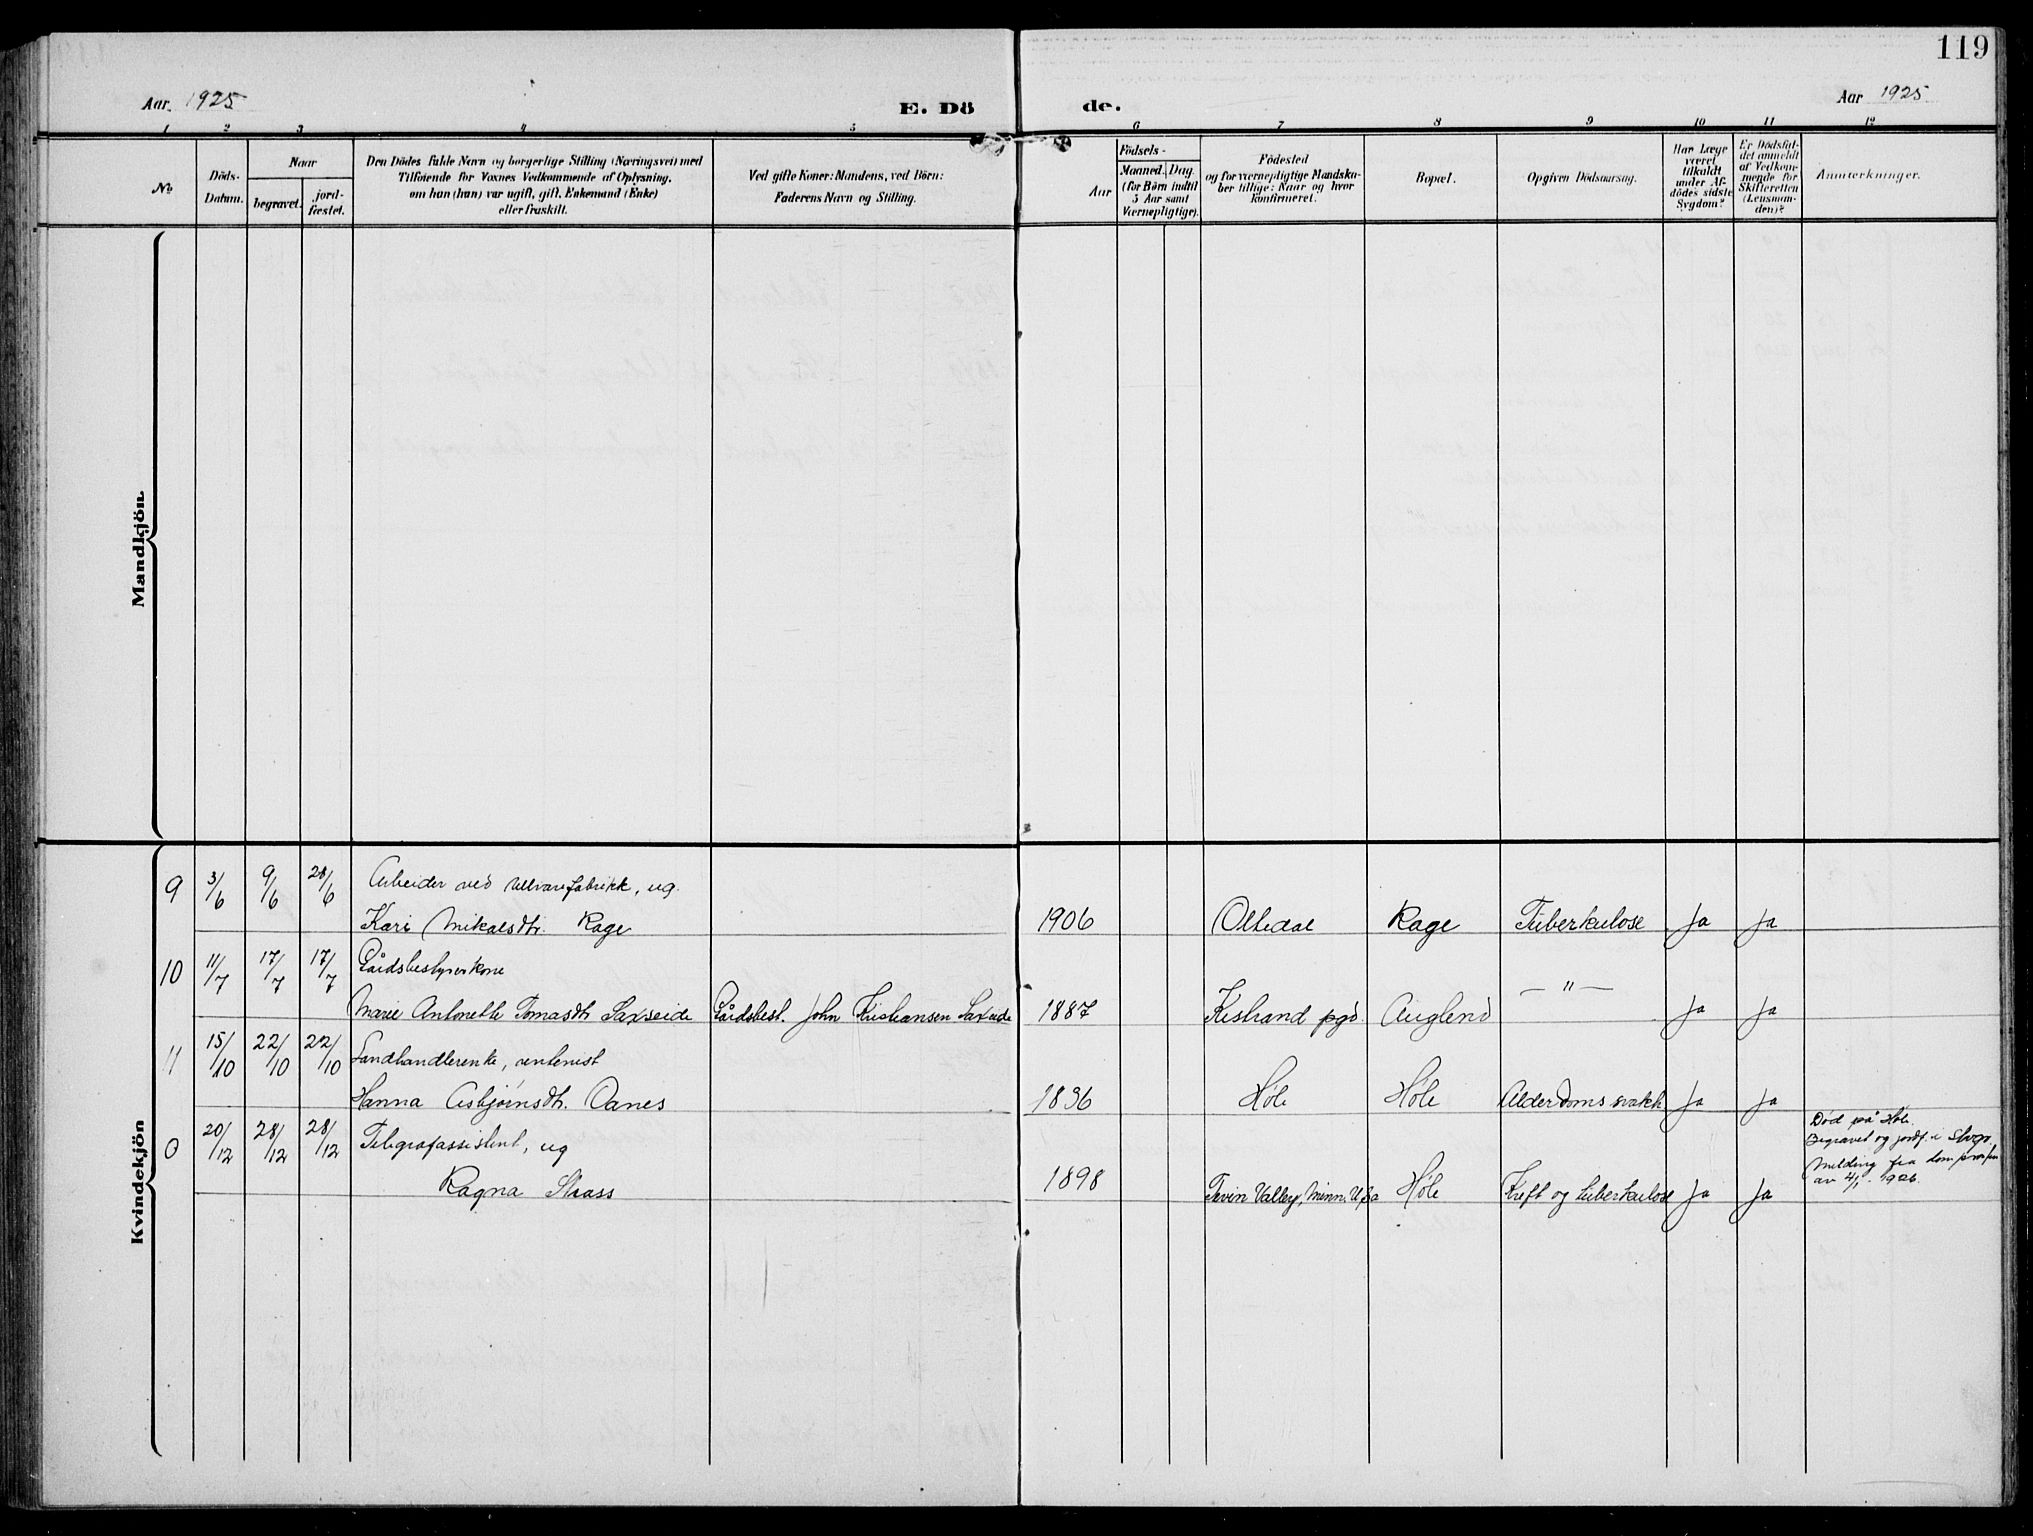 119
Aar 1925
E. Dö
de.
Aar 1925
1 2 3 4 5 6 7 8 9 10 11 12
No
Döds-
Datum.
Naar
begravet.
jord-
fæstet.
Den Dödes fulde Navn og borgerlige Stilling (Næringsvei) med
Tilföiende for Voxnes Vedkommende af Oplysning,
om han (hun) var ugift, gift, Enkemand (Enke)
eller fraskilt.
Ved gifte Koner: Mandens, ved Börn:
Faderens Navn og Stilling.
Aar
Födsels-
Maaned. Dag.
(for Börn indtil
5 Aar samt
Værnepligtige).
Födested
og for værnepligtige Mandska-
ber tillige: Naar og hvor
konfirmeret.
Bopæl.
Opgiven Dödsaarsag.
Har Læge
været
tilkaldt
under Af-
dödes sidste
Sygdom?
Er Dödsfal-
det anmeldt
af Vedkom-
mende for
Skifteretten
(Lensman-
den)?
Anmærkninger.
Mandkjön.
Kvindekjön
9 3/6 9/6 28/6 Arbeider ved Ullvarefabrikk, ug.
Kari Mikalsdtr. Rage 1906 Oltedal Rage Tuberkulose Ja Ja
10 11/7 17/7 17/7 Gårdsbestyrerkone
Marie Antonette Tomasdtr Saxseide Gårdsbest. John Kristiansen Saxseide 1887 Kistrand pgd. Auglend — " — Ja Ja
11 15/10 22/10 22/10 Landhandlerenke, rentenist
Hanna Asbjörnsdtr. Oanes 1836 Höle Höle Alderdomssvakh Ja Ja
0 20/12 28/12 28/12 Telegrafassistent, ug
Ragna Staass 1898 Twin Valley, Minn. Usa Höle Kreft og tuberkulose Ja Ja
Död på Höle.
Begravet og jordf. i Stvgr.
Melding fra domprosten
av 4/1 1926.